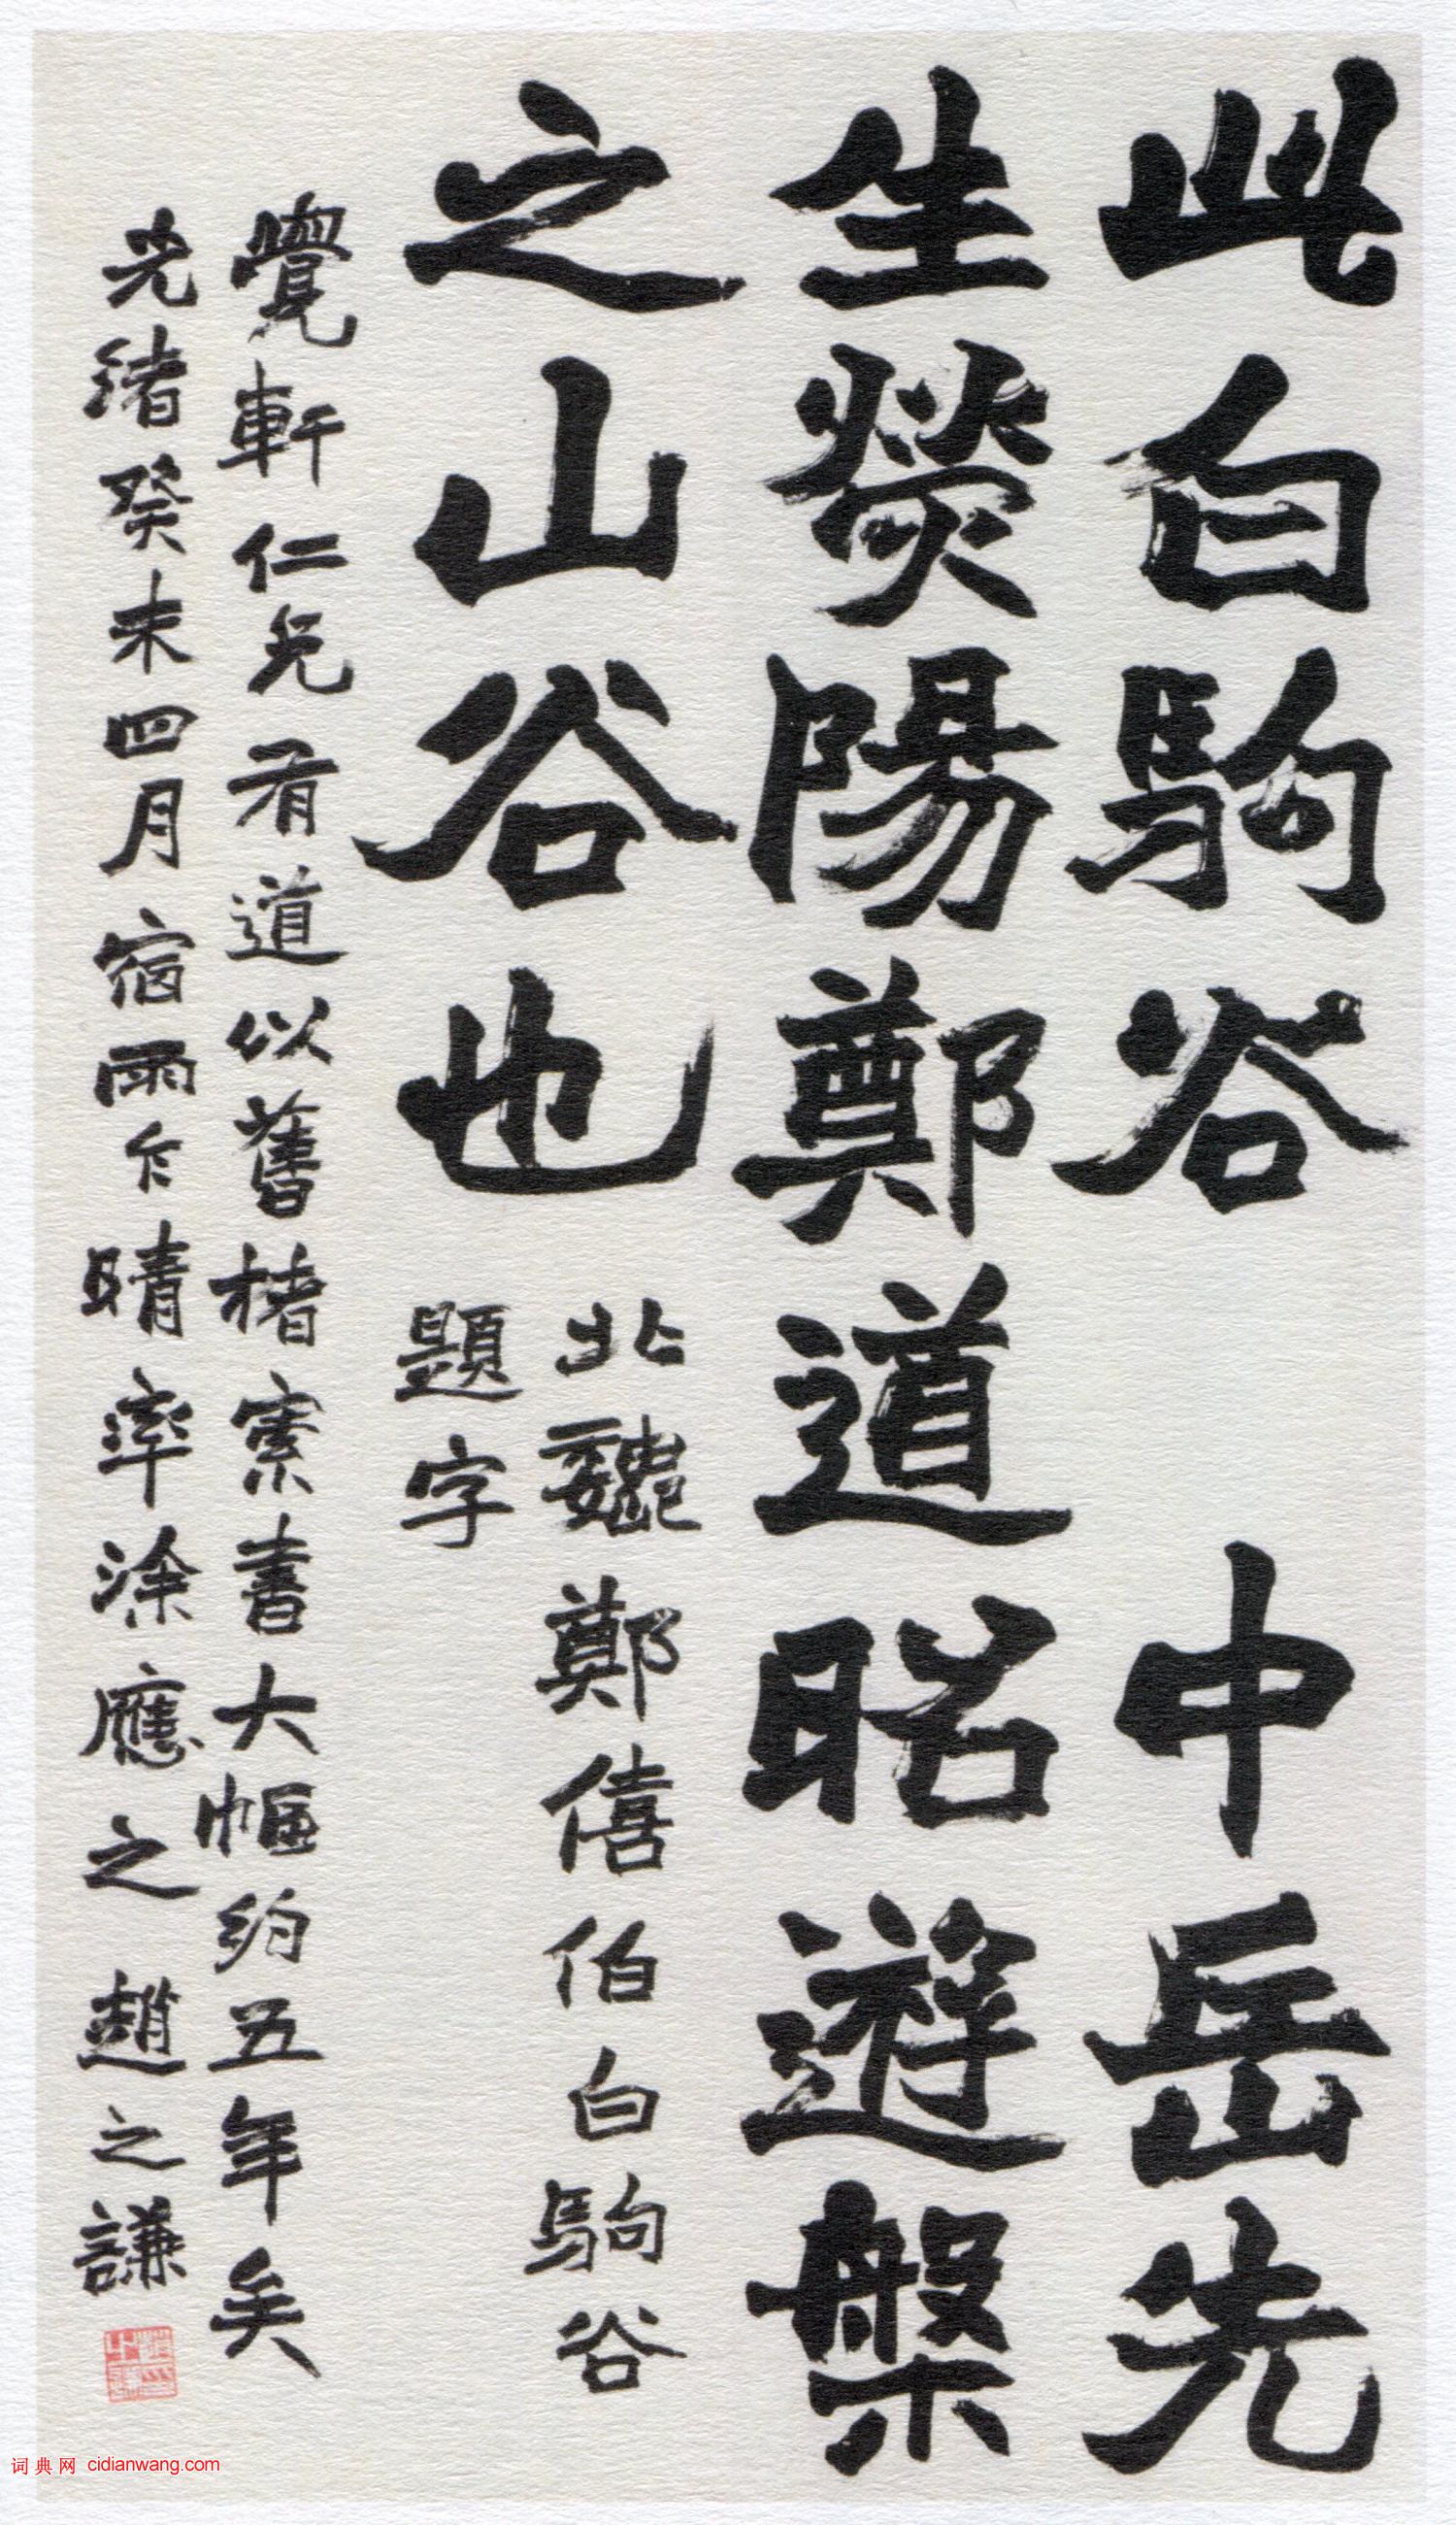 此白駒谷　中岳先
生熒陽鄭道昭遊槃
之山谷也
北魏鄭僖伯白駒谷
題字
覺軒仁兄有道以舊楮索書大幅約五年矣
光緒癸未四月宿雨乍晴率涂應之趙之謙
词典网 cidianwang.com